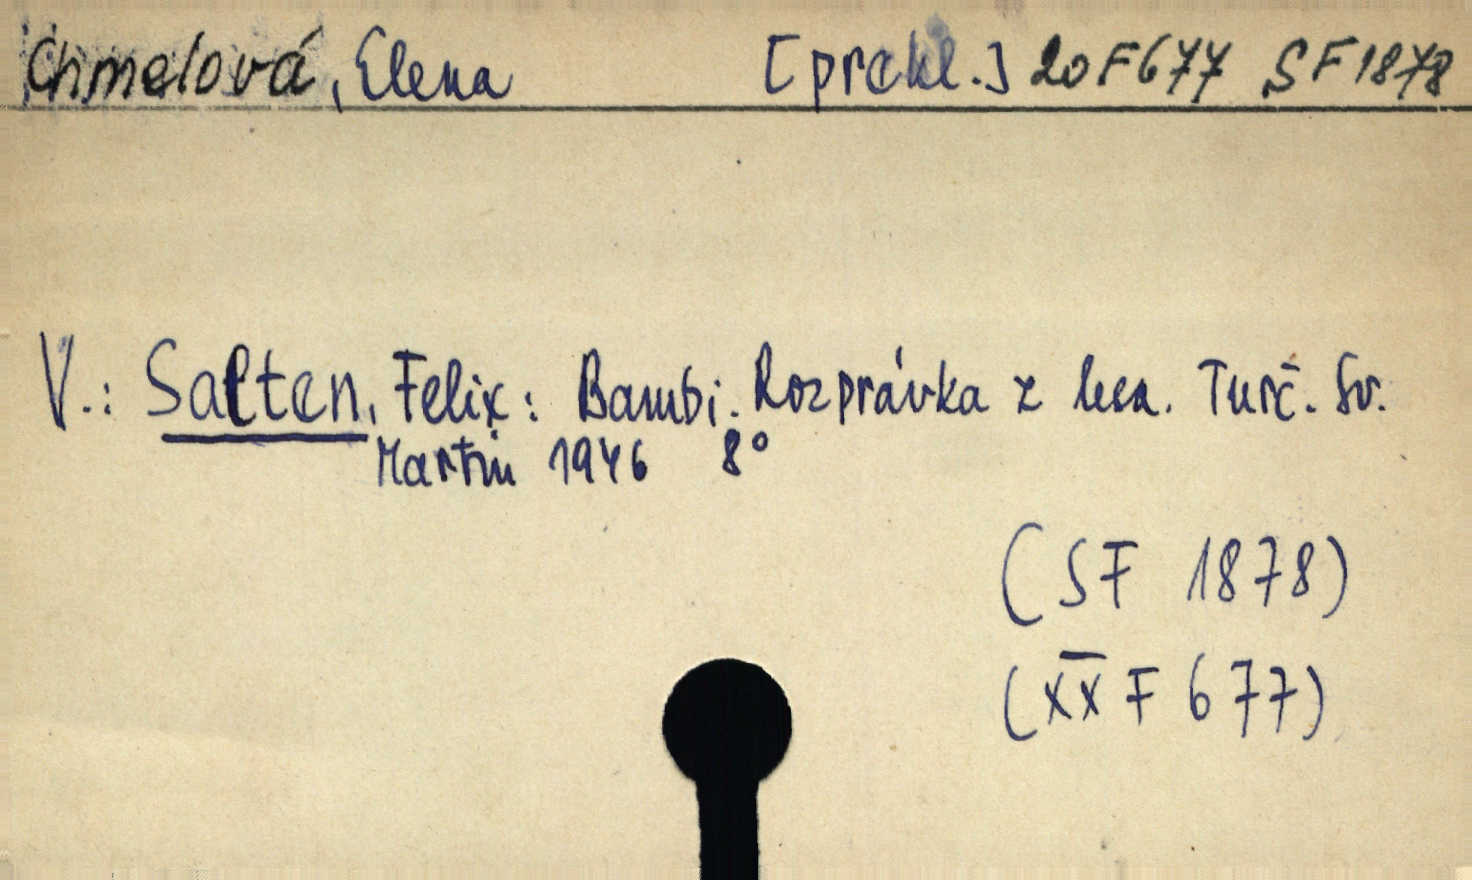 Chmelová, Elena [prekl.] 20 F 677 SF 1878
V.: Salten, Felix: Bambi. Rozprávka z lesa. Turč. Sv.
Martin 1946 8°
(SF 1878)
(XX F 677)